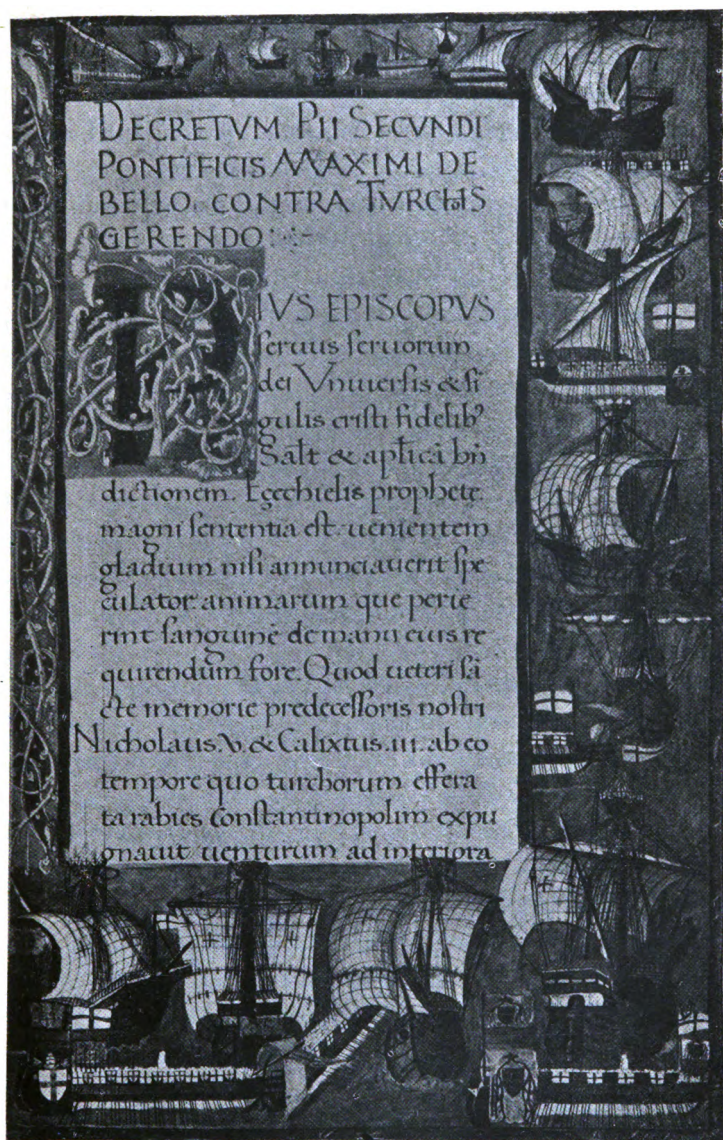 DECRETVM PII SECVNDI
PONTIFICIS MAXIMI DE
BELLO CONTRA TVRCHOS
GERENDO
PIVS EPISCOPVS
seruus seruorum
dei Vniuersis & si
gulis cristi fidelibꝰ
Salt & apl̃icã bñ
dictionem. Ezechielis prophete
magni sententia est. uenientem
gladium nisi annunciauerit spe
culator: animarum que perie
rint sanguinẽ de manu eius re
quirendum fore. Quod ueteri sã
cte memorie predecessoris nostri
Nicholaus. V. & Calixtus. iii. ab eo
tempore quo turchorum effera
ta rabies constantinopolim expu
gnauit uenturum ad interiora